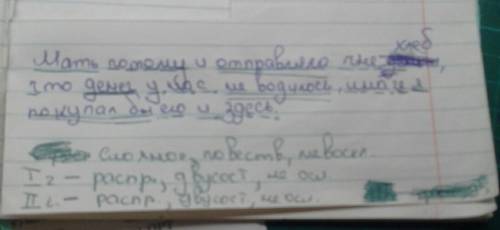 хлеб
Мать потому и отправляла мне,
что денег у нас не водилось, иначе я
покупал бы его и здесь.
сложное, повеств, невоскл.
I г – распр, двусост, не осл
II г. – распр, двусост, не осл.